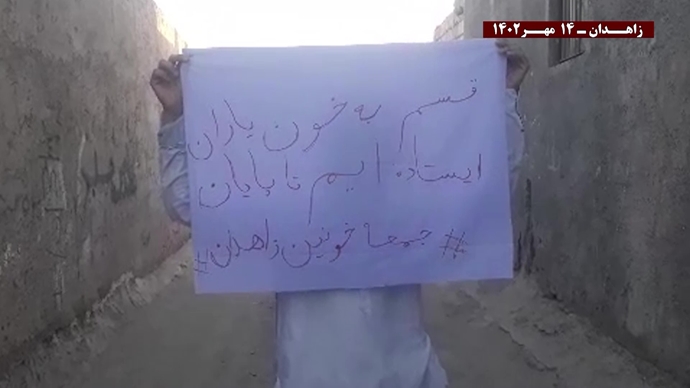 زاهـدان ــ ۱۴ مهـر۱۴۰۲
قسم به خون یاران
ایستاده ایم تا پایان
# جمعهٔ خونین زاهدان#